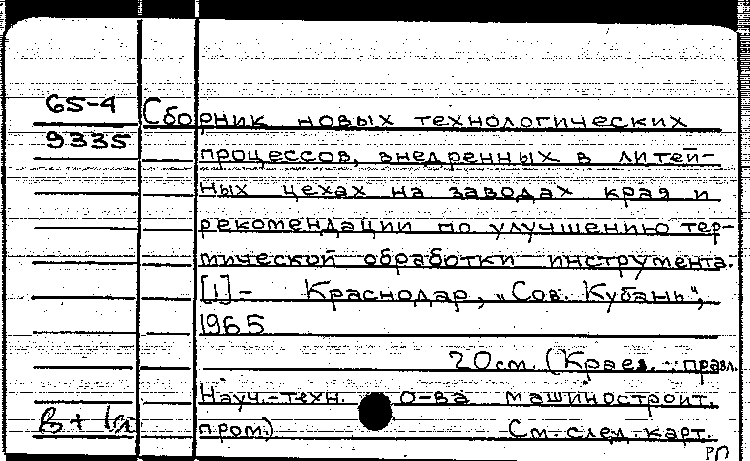 65-4 Сборник новых технологических
9335 процессов, внедренных в литей-
ных цехах на заводах края и
рекомендации по улучшению тер-
мической обработки инструмента.
[1]- Краснодар, "Сов. Кубань",
1965
20см. (Краев. правл.
Науч.-техн. о-ва машиностроит.
пром.) См. след. карт.